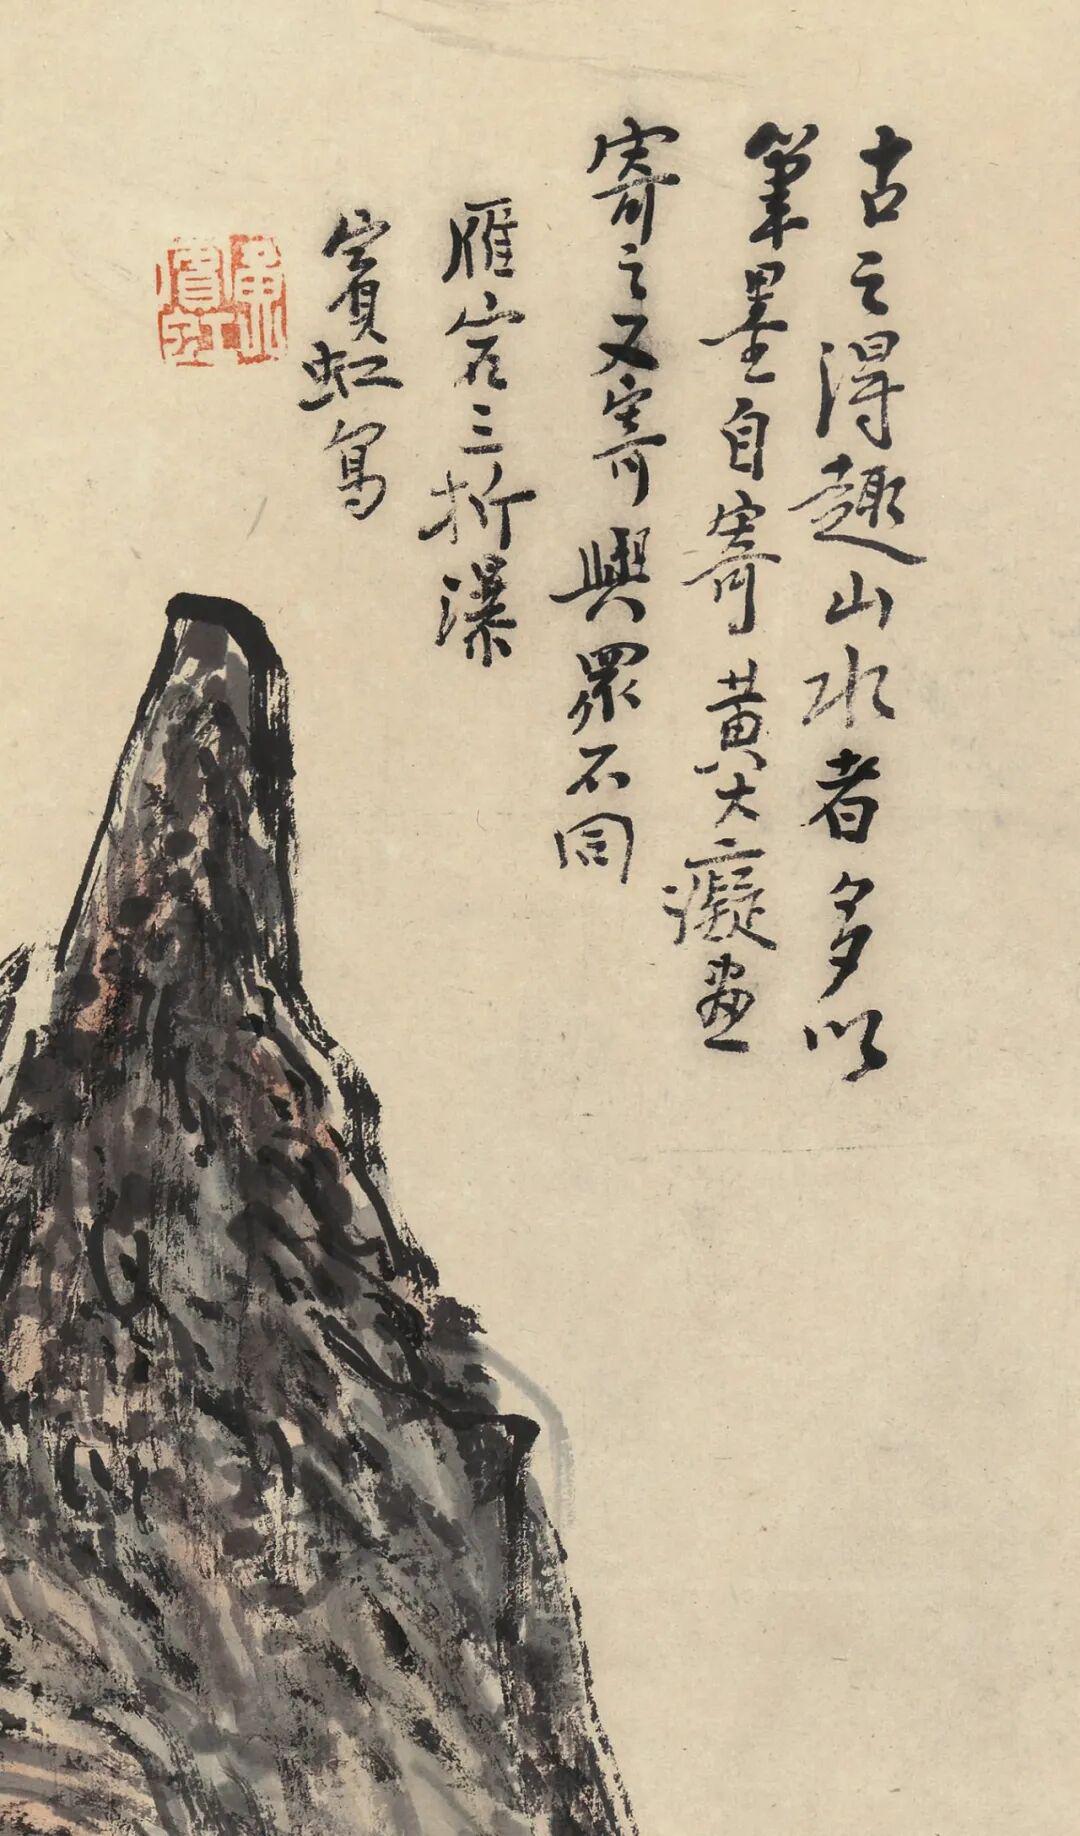 古之得趣山水者多以
筆墨自寄黃大癡畫
寄之又寄與眾不同
雁宕三折瀑
賓虹寫
黃賓虹